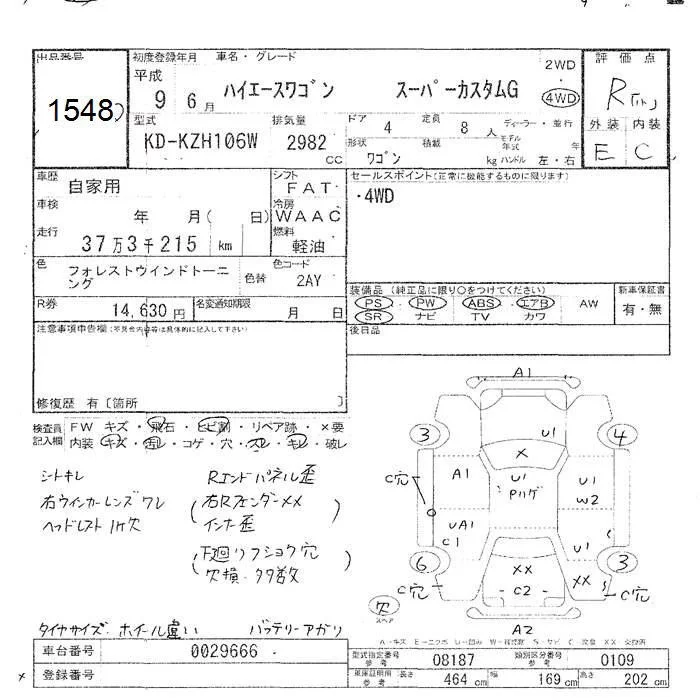 出品番号 初度登録年月 車名・グレード 評価点
1548
平成 9年 6月 ハイエースワゴン スーパーカスタムG 2WD・4WD
R
型式 排気量 ドア 4 定員 8人 ディーラー・並行
外装 内装
KD-KZH106W 2982 CC 形状 ワゴン 積載 kg モデル年式 年 ハンドル 左・右
E C
車歴 自家用 シフト FAT セールスポイント(正常に機能するものに限ります)
車検 年 月( 日) 冷房 WAAC ・4WD
走行 37万3千215 km 燃料 軽油
色 フォレストウインドトーニング 色替 色コード 2AY
装備品(純正品に限り○をつけてください) 新車保証書
PS・PW・ABS・エアB・AW 有・無
SR ナビ TV カワ
R券 14,630円 名変通知期限 月 日
後日品
注意事項申告欄(不具合内容等は具体的に記入して下さい)
修復歴 有〔箇所 〕
検査員記入欄 FW キズ・飛石・ヒビ割・リペア跡・×要
内装・キズ・汚レ・コゲ・穴・スレ・キレ・破レ
シートキレ Rエンドパネル歪
右ウインカーレンズワレ (右RフェンダーXX
ヘッドレスト1ケ欠 インナー歪)
(下廻りフショク穴
欠損・タタ数)
タイヤサイズ、ホイール違い バッテリーアガリ
A1
3 U1 4
X
C穴 A1 U1 Pハゲ U1 W2
UA1 C1 U1
6 XX XX 3
C穴 C2 C穴
欠 スペア
A2
A-キズ E-エクボ U-凹み W-補修波 S-サビ C-腐食 XX 交換済
車台番号 0029666
登録番号
型式指定番号 参考 08187 類別区分番号 参考 0109
車庫証明用 参考 長さ 464cm 幅 169cm 高さ 202cm